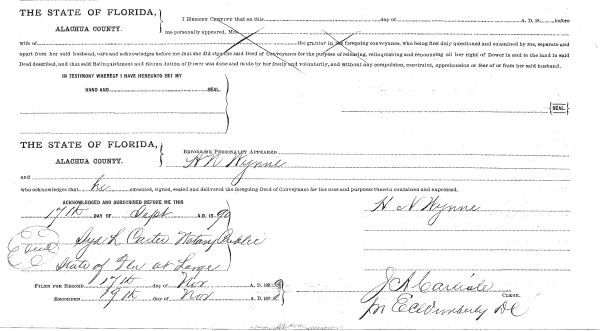 THE STATE OF FLORIDA,
ALACHUA COUNTY.
I HEREBY CERTIFY that on this day of A. D. 18 before
me personally appeared, Mrs.
wife of the grantor in the foregoing conveyance, who being first duly questioned and examined by me, separate and
apart from her said husband, says and acknowledges before me that she did sign the said Deed of Conveyance for the purpose of releasing, relinquishing and renouncing all her right of Dower in and to the land in said
Deed described, and that said Relinquishment and Renunciation of Dower was done and made by her freely and voluntarily, and without any compulsion, constraint, apprehension or fear of or from her said husband.
IN TESTIMONY WHEREOF I HAVE HEREUNTO SET MY
HAND AND SEAL.
SEAL.
THE STATE OF FLORIDA,
ALACHUA COUNTY.
BEFORE ME PERSONALLY APPEARED
H N Wynne
and
who acknowledges that he executed, signed, sealed and delivered the foregoing Deed of Conveyance for the uses and purposes therein contained and expressed.
ACKNOWLEDGED AND SUBSCRIBED BEFORE ME THIS
17th DAY OF Sept A.D. 18 90
H N Wynne
Syd L Carter Notary Public
Seal
State of Fla at Large
FILED FOR RECORD 17th day of Nov A.D. 18
RECORDED 19th day of Nov A.D. 18
J A Carlisle CLERK.
Per E C Wimberly DC